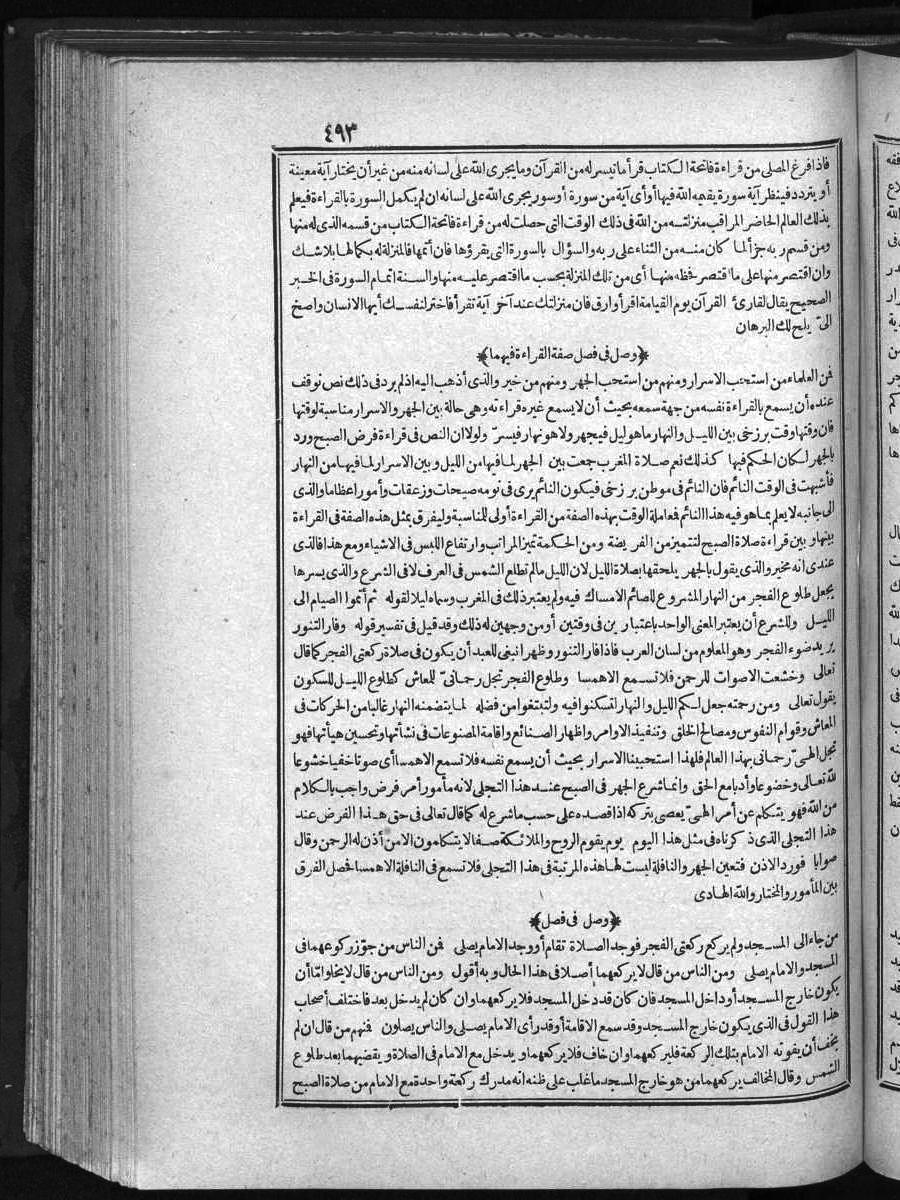 ٤٩٣
فاذا فرغ المصلى من قراءة فاتحة الكتاب قرأ ما تيسر له من القرآن وما يجرى الله على لسانه منه من غير أن يختار آية معينة
أو يتردد فينظر آية سورة يقيمه الله فيها أو أى آية من سورة أو سور يجرى الله على لسانه ان لم يكمل السورة بالقراءة فيعلم
بذلك العالم الحاضر المراقب منزلته من الله فى ذلك الوقت التى حصلت له من قراءة فاتحة الكتاب من قسمه الذى له منها
ومن قسم ربه جزأ لما كان منه من الثناء على ربه والسؤال بالسورة التى يقرؤها فان أتمها فالمنزلة له بكمالها بلا شك
وان اقتصر منها على ما اقتصر فحظه منها أى من تلك المنزلة بحسب ما اقتصر عليه منها والسنة اتمام السورة فى الخبر
الصحيح يقال لقارئ القرآن يوم القيامة اقرأ وارق فان منزلتك عند آخر آية تقرأ فاختر لنفسك أيها الانسان واصخ
الىّ يلح لك البرهان
﴿وصل فى فصل صفة القراءة فيهما﴾
فمن العلماء من استحب الاسرار ومنهم من استحب الجهر ومنهم من خير والذى أذهب اليه اذ لم يرد فى ذلك نص نوقف
عنده أن يسمع بالقراءة نفسه من جهة سمعه بحيث أن لا يسمع غيره قراءته وهى حالة بين الجهر والاسرار مناسبة لوقتها
فان وقتها وقت برزخى بين الليل والنهار ما هو ليل فيجهر ولا هو نهار فيسرّ ولولا ان النص فى قراءة فرض الصبح ورد
بالجهر لكان الحكم فيها كذلك نعم صلاة المغرب جمعت بين الجهر لما فيها من الليل وبين الاسرار لما فيها من النهار
فأشبهت فى الوقت النائم فان النائم فى موطن برزخى فيكون النائم يرى فى نومه صيحات وزعقات وأمورا عظاما والذى
الى جانبه لا يعلم بما هو فيه هذا النائم فعاملة الوقت بهذه الصفة من القراءة أولى للمناسبة وليفرق بمثل هذه الصفة فى القراءة
بينها وبين قراءة صلاة الصبح لتتميز من الفريضة ومن الحكمة تميز المراتب وارتفاع اللبس فى الاشياء ومع هذا فالذى
عندى انه مخير والذى يقول بالجهر يلحقها بصلاة الليل لان الليل مالم تطلع الشمس فى العرف لا فى الشرع والذى يسرها
يجعل طلوع الفجر من النهار المشروع للصائم الامساك فيه ولم يعتبر ذلك فى المغرب وسماه ليلا لقوله ثم أتموا الصيام الى
الليل وللشرع أن يعتبر المعنى الواحد باعتبارين فى وقتين أو من وجهين له ذلك وقد قيل فى تفسير قوله وفار التنور
يريد ضوء الفجر وهو المعلوم من لسان العرب فاذا فار التنور وظهر انبغى للعبد أن يكون فى صلاة ركعتى الفجر كما قال
تعالى وخشعت الاصوات للرحمن فلا تسمع الا همسا وطلوع الفجر تجل رحمانىّ للمعاش كطلوع الليل للسكون
يقول تعالى ومن رحمته جعل لكم الليل والنهار لتسكنوا فيه ولتبتغوا من فضله لما يتضمنه النهار غالبا من الحركات فى
المعاش وقوام النفوس ومصالح الخلق وتنفيذ الاوامر واظهار الصنائع واقامة المصنوعات فى نشأتها وتحسين هيأتها فهو
تجل الهىّ رحمانى بهذا العالم فلهذا استحبينا الاسرار بحيث أن يسمع نفسه فلا تسمع الا همسا أى صوتا خفيا خشوعا
لله تعالى وخضوعا وأدبا مع الحق وانما شرع الجهر فى الصبح عند هذا التجلى لانه مأمور أمر فرض واجب بالكلام
من الله فهو يتكلم عن أمر الهىّ يعصى بتركه اذا قصده على حسب ما شرع له كما قال تعالى فى حق هذا الفرض عند
هذا التجلى الذى ذكرناه فى مثل هذا اليوم يوم يقوم الروح والملائكة صفا لا يتكلمون الا من أذن له الرحمن وقال
صوابا فورد الاذن فتعين الجهر والنافلة ليست لها هذه المرتبة فى هذا التجلى فلا تسمع فى النافلة الا همسا فحصل الفرق
بين المأمور والمختار والله الهادى
﴿وصل فى فصل﴾
من جاء الى المسجد ولم يركع ركعتى الفجر فوجد الصلاة تقام أو وجد الامام يصلى فمن الناس من جوّز ركوعهما فى
المسجد والامام يصلى ومن الناس من قال لا يركعهما أصلا فى هذا الحال وبه أقول ومن الناس من قال لا يخلو اما أن
يكون خارج المسجد أو داخل المسجد فان كان قد دخل المسجد فلا يركعهما وان كان لم يدخل بعد فاختلف أصحاب
هذا القول فى الذى يكون خارج المسجد وقد سمع الاقامة أو قد رأى الامام يصلى والناس يصلون فمنهم من قال ان لم
يخف أن يفوته الامام بتلك الركعة فليركعهما وان خاف فلا يركعهما ويدخل مع الامام فى الصلاة ويقضيهما بعد طلوع
الشمس وقال المخالف يركعهما من هو خارج المسجد ما غلب على ظنه انه مدرك ركعة واحدة مع الامام من صلاة الصبح